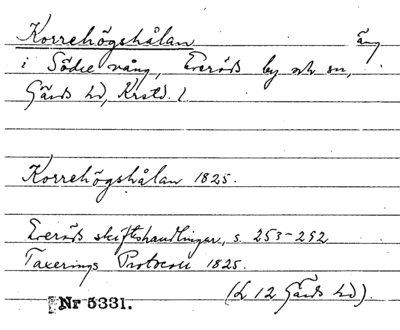 Korrehögshålan äng
i Södre vång, Everöds by och sn,
Gärds hd, Krstd. l
Korrehögshålan 1825.
Everöds skiftshandlingar, s. 253-292
Taxerings Protocoll 1825.
(L 12 Gärds hd).
Nr 5331.